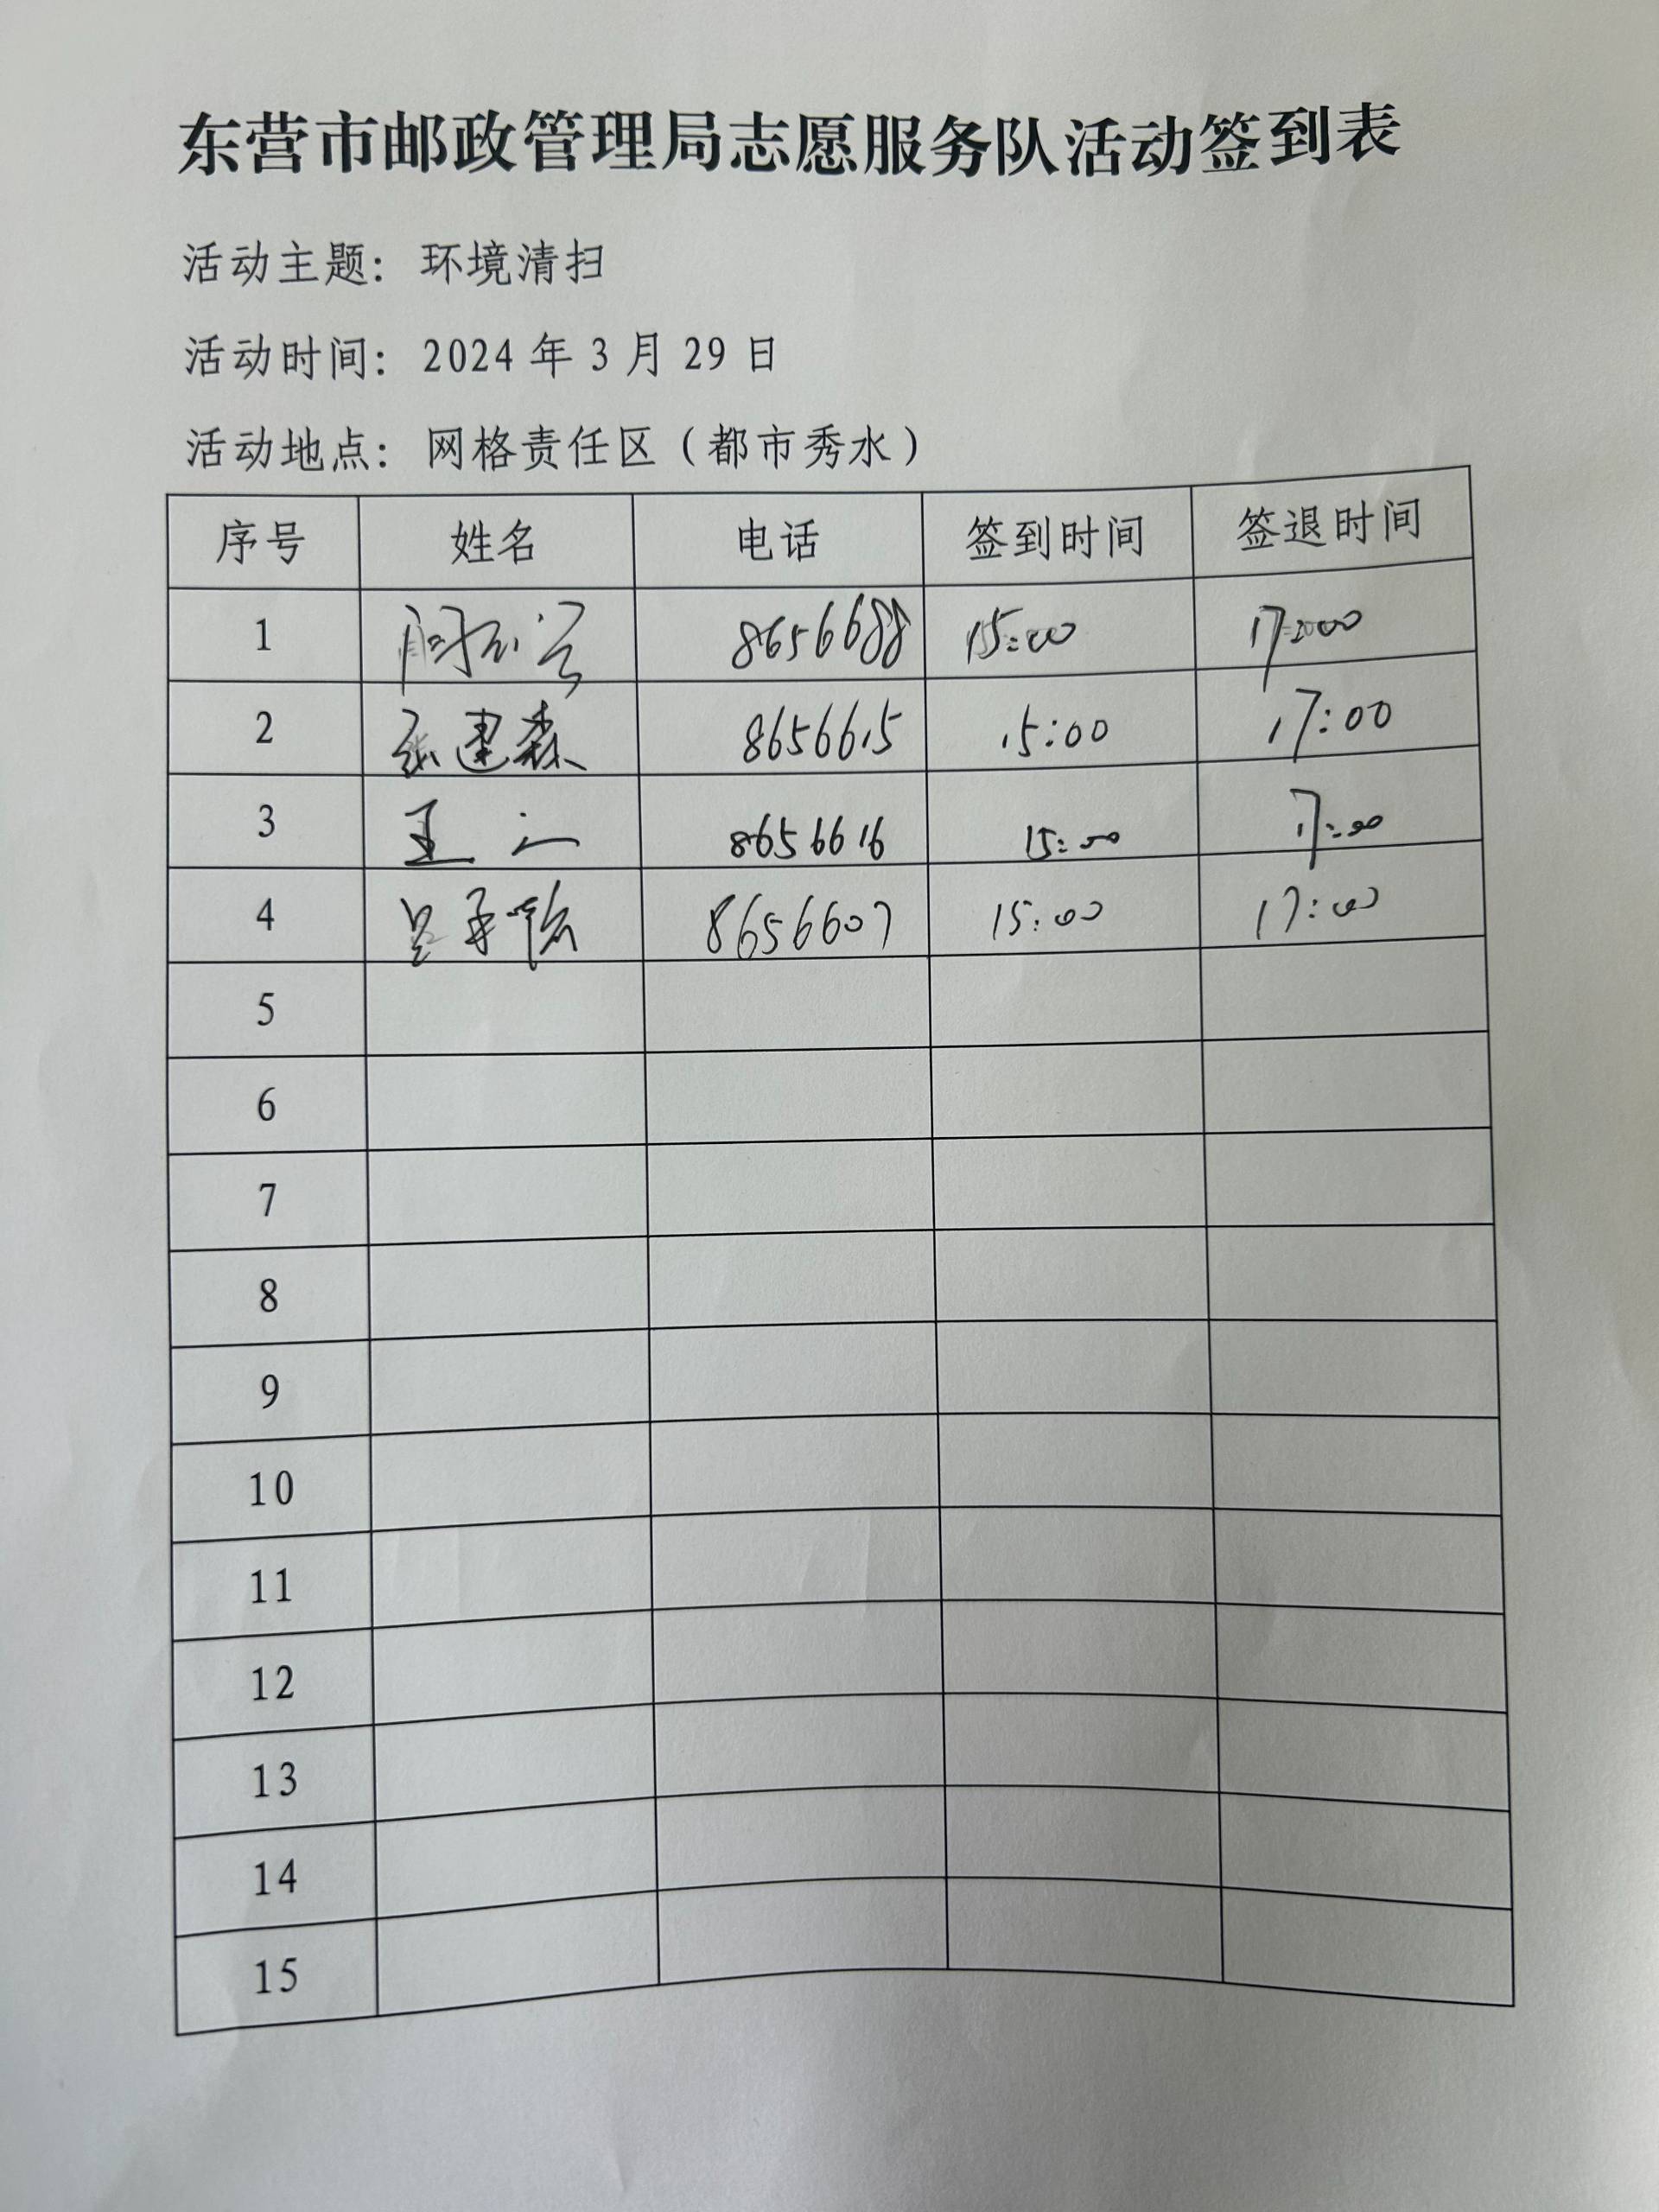 东营市邮政管理局志愿服务队活动签到表
活动主题：环境清扫
活动时间：2024 年 3 月 29 日
活动地点：网格责任区（都市秀水）
序号 姓名 电话 签到时间 签退时间
1 8656688 15:00 17:00
2 张建森 8656615 15:00 17:00
3 王 8656616 15:00 17:00
4 8656607 15:00 17:00
5
6
7
8
9
10
11
12
13
14
15